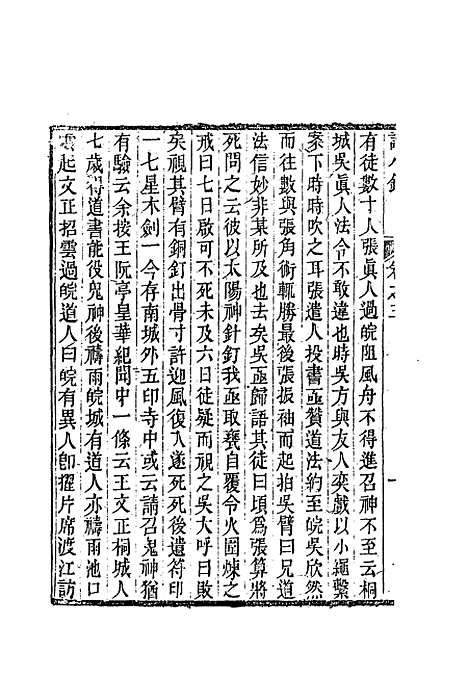 有徒數十人張眞人過皖阻風舟不得進召神不至云桐
城吳眞人法令不敢違也時吳方與友人奕戲以小繩繫
案下時時吹之耳張遣人投書亟贊道法約至皖吳欣然
而往數與張角術輒勝最後張振袖而起拍吳臂曰兄道
法信妙非某所及也去矣吳亟歸語其徒曰頃爲張算將
死問之云彼以太陽神針釘我亟取甕自覆令火圍煉之
戒曰七日啟可不死未及六日徒疑而視之吳大呼曰敗
矣視其臂有銅釘出骨寸許迎風復入遂死死後遺符印
一七星木劍一今存南城外五印寺中或云請召鬼神猶
有驗云余按王阮亭皇華紀聞中一條云王文正桐城人
七歲得道書能役鬼神後禱雨皖城有道人亦禱雨池口
雲起文正招雲過皖道人曰皖有異人卽擢片席渡江訪